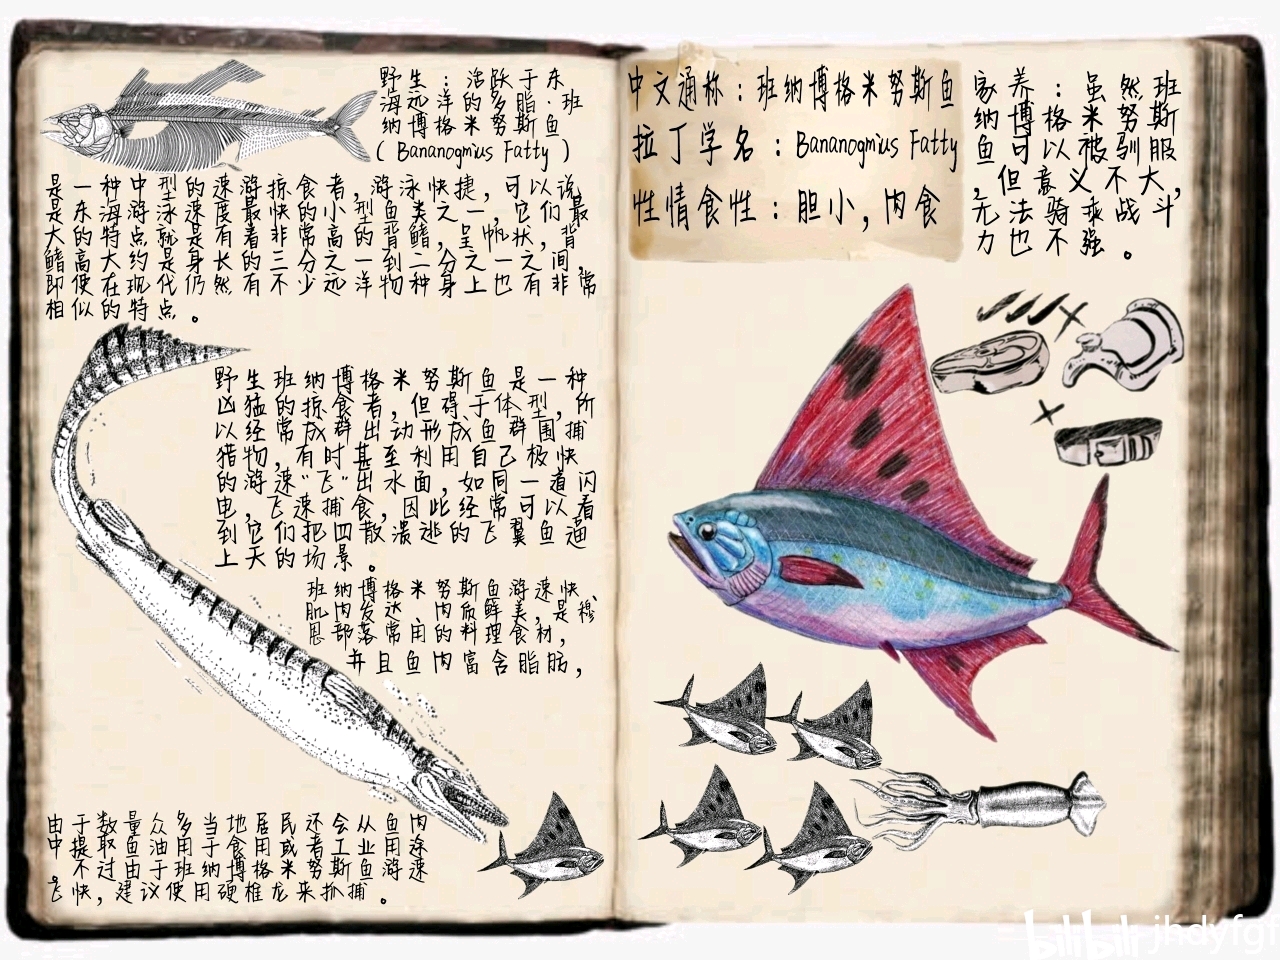 野生：活跃于东
海远洋的多脂·班
纳博格米努斯鱼
( Bananogmius Fatty )
是一种中型的速游掠食者，游泳快捷，可以说
是东海游泳速度最快的小型鱼类之一，它们最
大的特点就是有着非常高的背鳍，呈帆状，背
鳍高大约是身长的三分之一到二分之一之间，
即使在现代仍然有不少远洋物种身上也有非常
相似的特点。
野生班纳博格米努斯鱼是一种
凶猛的掠食者，但碍于体型，所
以经常成群出动形成鱼群围捕
猎物，有时甚至利用自己极快
的游速“飞”出水面，如同一道闪
电，飞速捕食，因此经常可以看
到它们把四散溃逃的飞翼鱼逼
上天的场景。
班纳博格米努斯鱼游速快、
肌肉发达、肉质鲜美，是穆
恩部落常用的料理食材，
并且鱼肉富含脂肪，
由于数量众多当地居民还会从鱼肉
中提取鱼油用于食用或者工业用途
，不过由于班纳博格米努斯鱼游速
飞快，建议使用硬椎龙来抓捕。
中文通称：班纳博格米努斯鱼
拉丁学名：Bananogmius Fatty
性情食性：胆小，肉食
家养：虽然班
纳博格米努斯
鱼可以被驯服
，但意义不大，
无法骑乘战斗
力也不强。
bilibili jhdyfgf